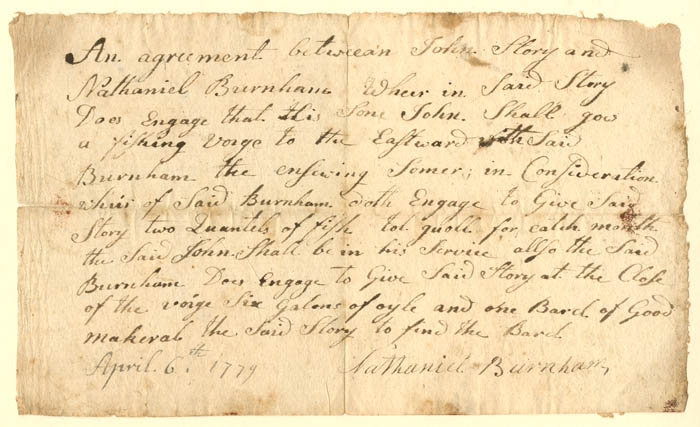 An agreement betweean John Story and
Nathaniel Burnham Wheir in Said Story
Does Engage that this Sone John Shall gow
a fishing Voige to the Eastward with Said
Burnham the ensewing Somer; in Consideration
whir of Said Burnham doth Engage to Give Said
Story two Quantels of fish tol quoll for eatch month
the Said John Shall be in his Service allso the Said
Burnham Does Engage to Give Said Story at the Close
of the voige Six Galons of oyle and one Barel of Good
makeral the Said Story to find the Barel
April 6.th 1779 Nathaniel Burnham